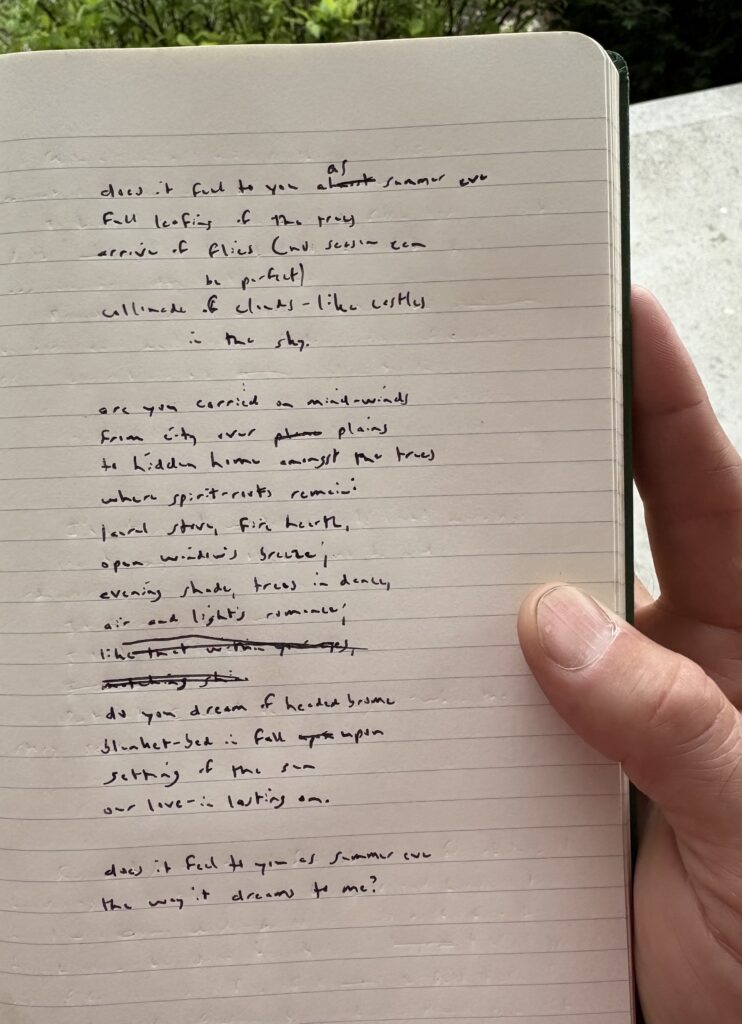 does it feel to you as summer eve
full leafing of the trees
arrive of flies (no season can
be perfect)
of clouds-like castles
in the sky.
are you carried on mind-winds
from city over plains
to hidden home amongst the trees
where spirit-roots remain:
stove, fire hearth,
open window's breeze;
evening shade, trees in dance,
air and light's romance;
do you dream of headed brome
blanket-bed in fall upon
setting of the sun
our love-in lasting on.
does it feel to you as summer eve
the way it dreams to me?